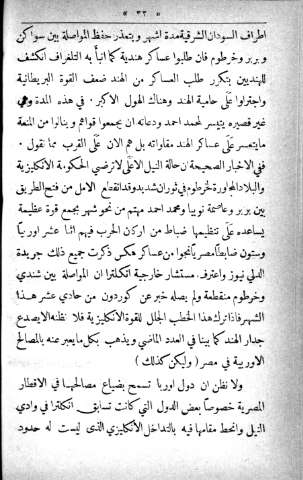 « ٣٢ »
اطراف السودان الشرقية مدة اشهر ويتعذر حفظ المواصلة بين سواكن
و بربر وخرطوم فان طلبوا عساكر هندية كما انبأ به التلغراف انكشف
للهنديين بتكرر طلب العساكر من الهند ضعف القوة البريطانية
واجترأوا على حامية الهند وهناك الهول الاكبر . في هذه المدة وهي
غير قصيره يتيسر لمحمد احمد ودعاته ان يجمعوا قواهم وينالوا من المنعة
ما يتعسر على عساكر الهند مقاواته بل هم الان على القرب مما نقول .
ففي الاخبار الصحيحة ان حالة النيل الاعلى لا ترضي الحكومة الانكليزية
والبلاد المجاورة لخرطوم في ثوران شديد وقد انقطع الامل من فتح الطريق
بين بربر وعاصمة نوبيا ومحمد احمد مهتم من نحو شهر بجمع قوة عظيمة
يساعده على تنظيمها ضباط من اركان الحرب فيهم اثنا عشر اوربيا
وستون ضابطا مصريا نجوا من عساكر هكس ذكرت جميع ذلك جريدة
الدلي نيوز واعترف مستشار خارجية انكلترا ان المواصلة بين شندي
وخرطوم منقطعة ولم يصله خبر عن كوردون من حادي عشر هذا
الشهر فاذا ترك هذا الخطب الجلل للقوة الانكليزية فلا نظنه الا يصدع
جدار الهند كما بينا في العدد الماضي ويذهب بكل ما يعبر عنه بالمصالح
الاوربية في مصر ( وليكن كذلك )
ولا نظن ان دول اوربا تسمح بضياع مصالحها في الاقطار
المصرية خصوصاً بعض الدول التي كانت تسابق انكلترا في وادي
النيل وانحط مقامها فيه بالتداخل الانكليزي الذى ليست له حدود